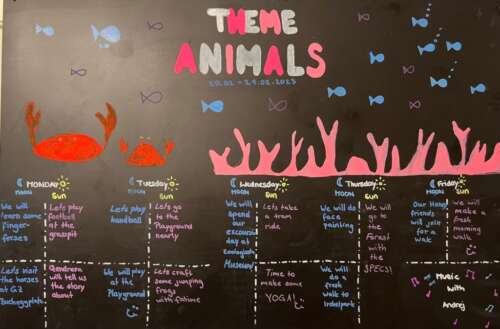 THEME
ANIMALS
20.02 - 24.02.2023
MONDAY
MOON
SUN
We will
learn some
finger-
ferses
Let's play
football
at the
grasspit
Let's visit
the horses
at G2
Qendresa
will tell
us the
story
about
Tuesday
MOON
SUN
Let's play
handball
Let's go
to the
Playground
nearly
We will
play at the
Playground
Let's craft
some jumping
frogs
with fatime
Wednesday
MOON
SUN
We will
spend
our
day at
Museum!
Let's take a
tram
ride
Time to
make some
YOGA!
Thursday
MOON
SUN
We will
do face
painting
We will
go to
the
Forest
with the
SPECS!
We will
do a
fresh
walk to
Friday
MOON
SUN
Our Hong
friends
will join
for a
wak
We will
make a
fresh
morning
walk
Music
with
Andrej